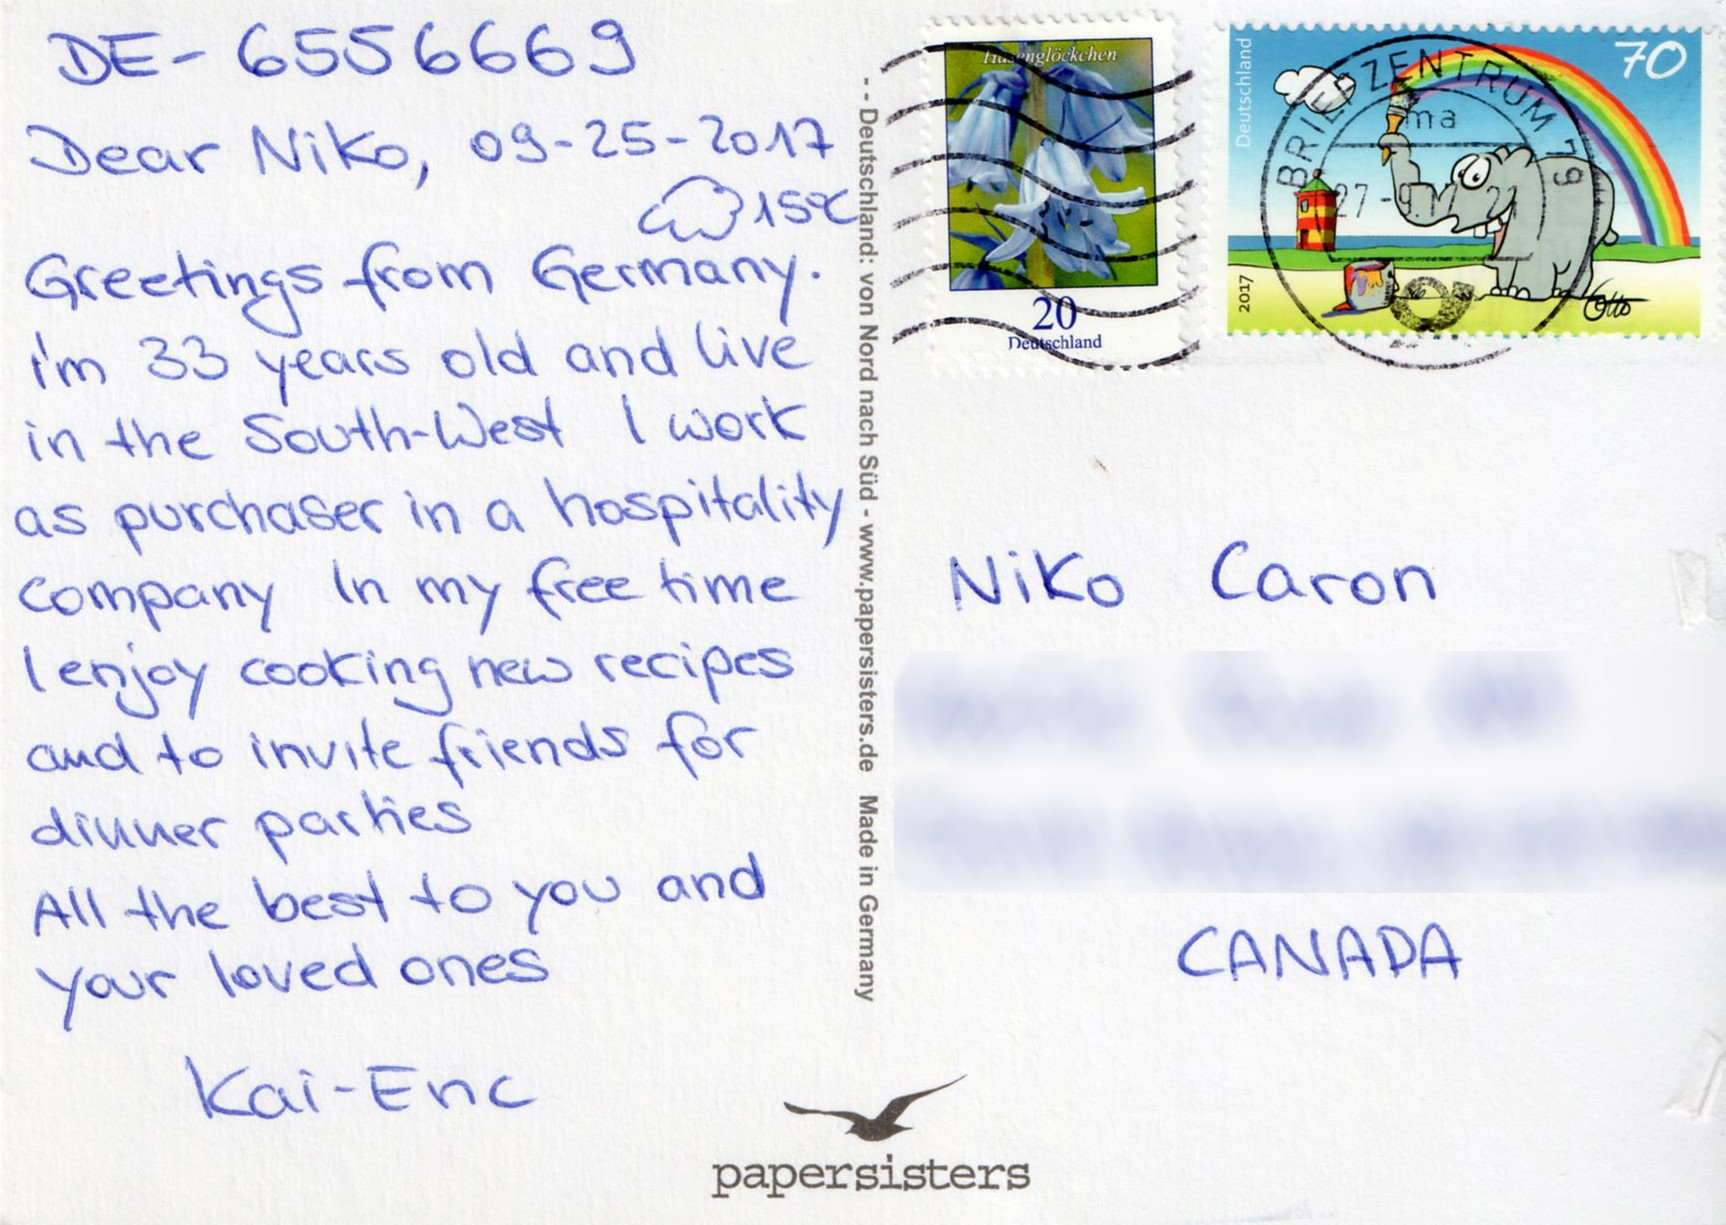 DE- 6556669
Dear Niko, 09-25-2017
15°C
Greetings from Germany.
I'm 33 years old and live
in the South-West I work
as purchaser in a hospitality
company In my free time
I enjoy cooking new recipes
and to invite friends for
dinner parties
All the best to you and
your loved ones
Kai-Eric
- - Deutschland: von Nord nach Süd - www.papersisters.de Made in Germany
papersisters
Hasenglöckchen
20
Deutschland
Deutschland
70
2017
Otto
BRIEFZENTRUM 79
ma
27-9.17
Niko Caron
CANADA